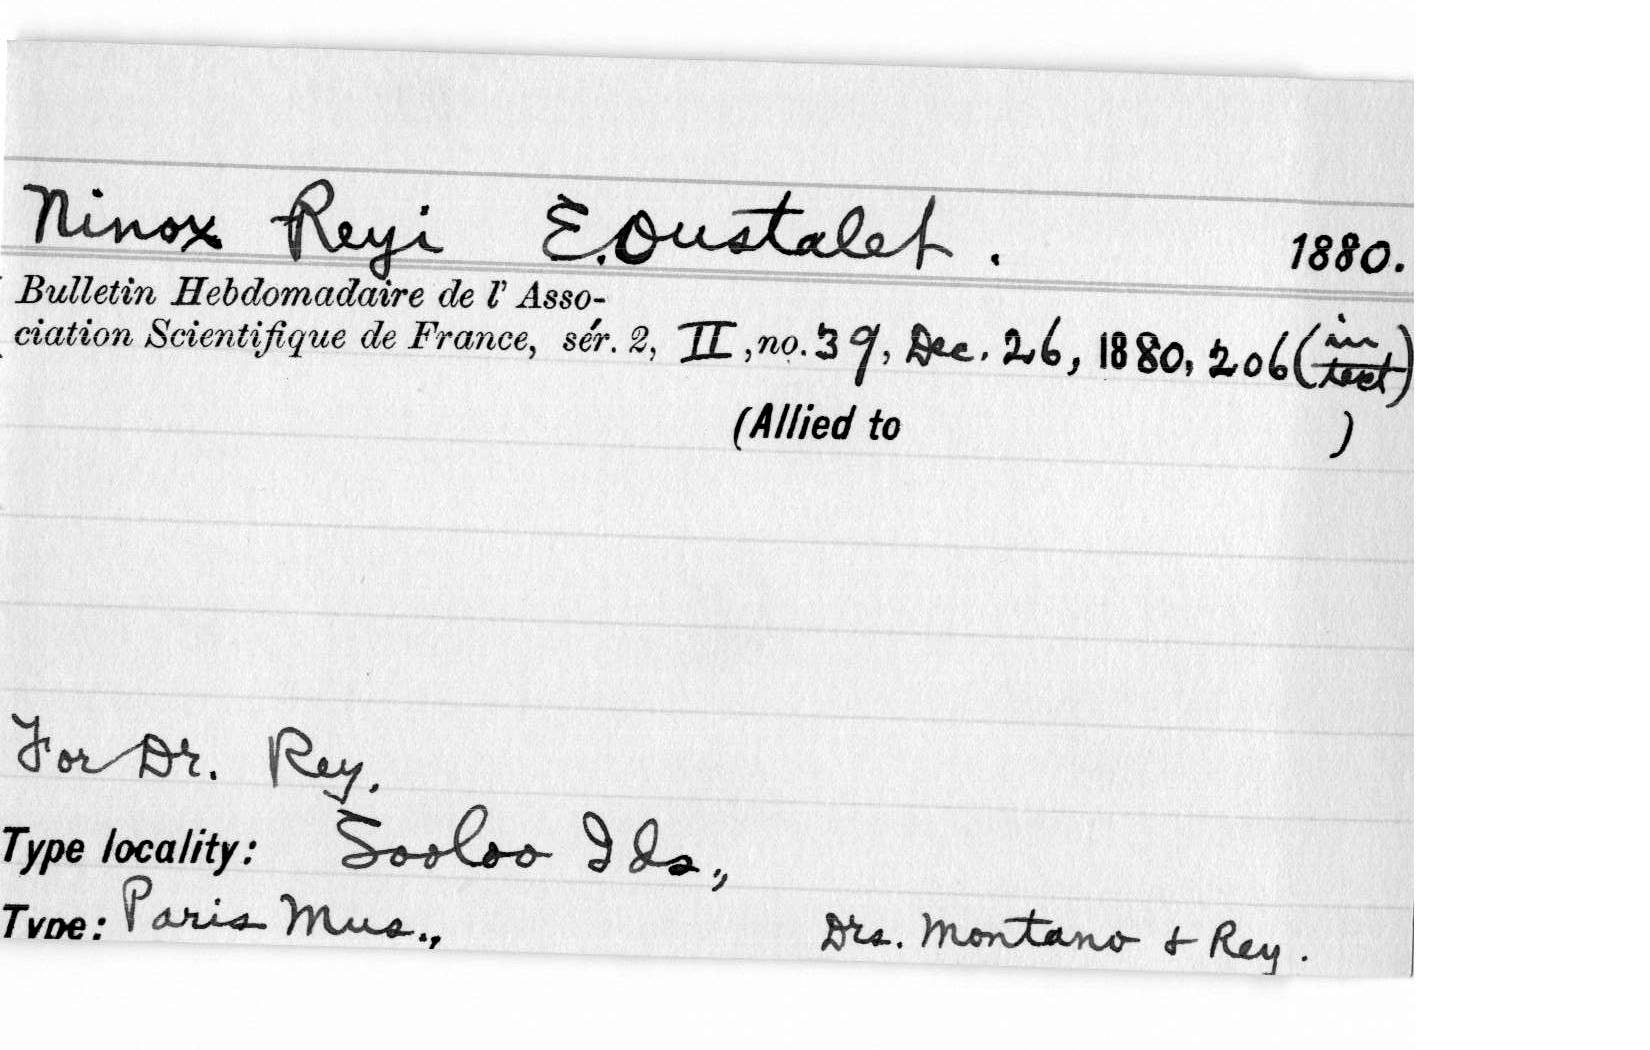 Ninox Reyi E. Oustalet. 1880.
Bulletin Hebdomadaire de l' Asso-
ciation Scientifique de France, sér. 2, II, no. 39, Dec. 26, 1880, 206 (in text)
(Allied to )
For Dr. Rey.
Type locality: Sooloo Ids.,
Type: Paris Mus., Drs. Montano & Rey.